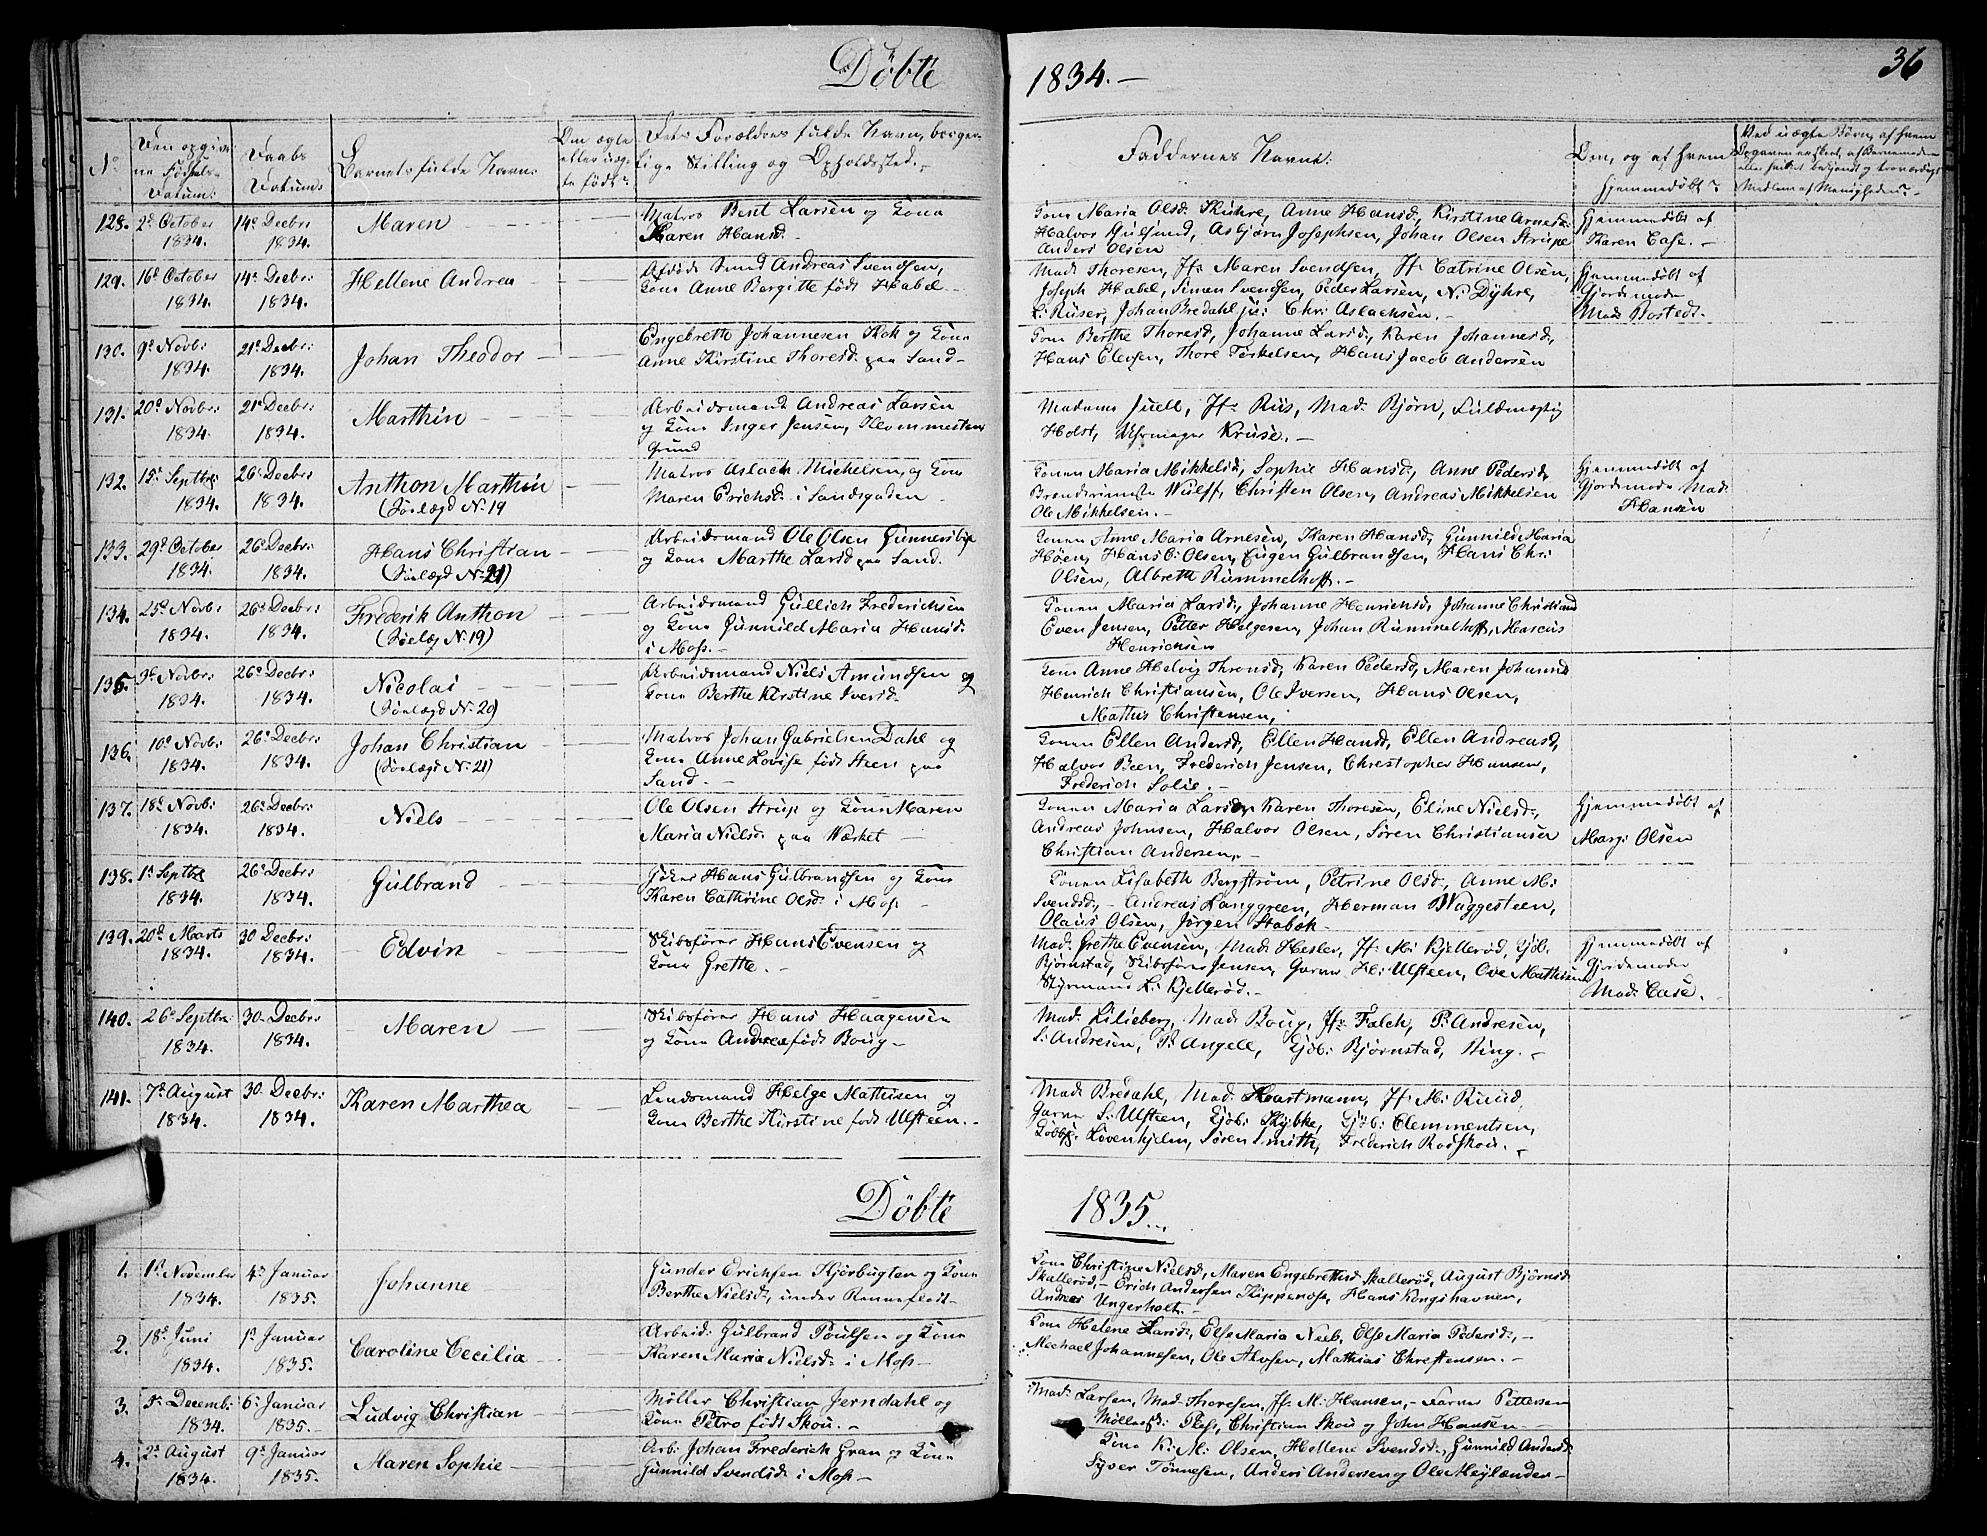 Döbte
1834.-
36
No
Den opgivne Fødsels-Datum:
Daabs Datum:
Barnets fulde Navn:
Om ægte eller uægte født:
Forældres fulde Navn, borgerlige Stilling og Opholdssted.-
Faddernes Navne:
Om, og af hvem hjemmedøbt:
128. 2d October 1834. 14d Decbr 1834. Maren
Matros Bent Larsen og Kona
Karen Hansd.-
Kone Maria Olsd. Anne Hansd, Kirstine
Halvor Asbjørn Josephsen, Johan Olsen Strupe
Anders Olsen
Hjemmedøbt af
Karen Case.-
129. 16d October 1834. 14d Decbr: 1834. Hellene Andrea
Andreas Svendsen,
Kone Anne Birgitte født Habel.-
Mad: Thoresen, Jfr Maren Svendsen, Jfr Catrine Olsen,
Joseph Habel, Simen Svendsen, Peder Larsen, N: Dyhre,
L: Rüser, Johan Bredahl ju: Chr: Aslachsen.-
Hjemmedøbt af
Gjordemoder
Mad:
130. 9d Novbr: 1834. 21d Decbr: 1834. Johan Theodor
Engebreth Johannesen og Kone
Anne Kirstine Thoresd: paa Sand-
Kone Berthe Thoresd, Johanne Larsd, Karen Johannesd,
Hans Thore Terkelsen, Hans Jacob Andersen
131. 20d Novbr: 1834. 21d Decbr: 1834. Marthin
Arbeidsmand Andreas Larsen
og Kone Inger Jensen,
Grund
Madame Juell, Jfr: Riis, Mad: Bjørn, Fuldmægtig
Holst, Uhrmager Kruse.-
132. 15d Septbr: 1834. 26d Decbr: 1834. Anthon Marthin
(Sölægd N: 19
Matros Aslach Michelsen, og Kone
Maren Erichsd: i Sandgaden
Konen Maria Mikkelsd, Sophie Hansd, Anne Pedersd,
Wulff, Christen Olsen, Andreas Mikkelsen
Ole Mikkelsen.-
Hjemmedøbt af
Gjordemoder Mad:
Hansen
133. 29d October 1834. 26d Decbr: 1834. Hans Christian
(Sölægd N: 21)
Arbeidsmand Ole Olsen
og Kone Marthe Larsd paa Sand.
Konen Anne Maria Arnesen, Karen Hansd, Gunnild Maria
Høen, Hans C: Olsen, Eugen Gulbrandsen, Hans Chr:
Olsen, Albreth Rummelhoff.-
134. 25d Novbr: 1834. 26d Decbr: 1834. Frederik Anthon
(Sölæg N: 19)
Arbeidsmand Gullich Frederichsen
og Kone Gunnild Maria Hansd:
i Moss.-
Konen Maria Larsd, Johanne Henrichsd, Johanne Christiansd
Even Jensen, Petter Helgesen, Johan Rummelhoff, Marcus
Henrichsen
135. 9d Novbr: 1834. 26d Decbr: 1834. Nicolai
(Sölægd N: 20)
Arbeidsmand Niels Amundsen og
Kone Berthe Kirstine Iversd.
Kone Anne Helvig Karen Pedersd, Maren Johannesd
Henrich Christiansen, Ole Iversen, Hans Olsen,
Mathis Christensen,
136. 10d Novbr: 1834. 26d Decbr: 1834. Johan Christian
(Sölægd N: 21)
Matros Johan Gabrielsen Dahl og
Kone Anne Lovise født Steen paa
Sand.-
Konen Ellen Andersd, Ellen Hansd, Ellen Andreasd,
Halvor Been, Frederich Jensen, Christopher Hansen,
Frederich Solie.-
137. 18d Novbr: 1834. 26d Decbr: 1834. Niels
Ole Olsen Strup og Kone Maren
Maria Nielsd: paa Værket
Konen Maria Larsen, Karen Thoresen, Eline Nielsd,
Andreas Johnsen, Halvor Olsen, Søren Christiansen
Christian Andersen,-
Hjemmedøbt af
Marg: Olsen
138. 1d Septbr 1834. 26d Decbr: 1834. Gulbrand
Hans Gulbrandsen og Kone
Karen Cathrine Olsd: i Moss-
Konen Lisabeth Bergstrøm, Petrine Olsd, Anne M:
Svendsd,- Andreas Langgreen, Herman Waggesteen,
Olaus Olsen, Jørgen Stabek
139. 20d Marts 1834. 30 Decbr: 1834. Edvin
Skibsfører Hans Evensen og
Kone Grethe.-
Mad: Grethe Evensen, Mad: Hesler, Jfr M: Kjellerød, Kjöb:
Bjørnstad, Skibsfører Jensen, Garver H: Ulsteen, Ove Mathisen
Styrmand L: Kjellerød.-
Hjemmedøbt af
Gjordemoder
Mad: Case.
140. 26d Septbr: 1834. 30 Decbr: 1834. Maren
Skibsfører Hans Haagensen
og Kone Andrea født Boug-
Mad: Lilieberg, Mad: Boug, Jfr: Falch, P: Andresen,
S: Andresen, P: Angell, Kjöb: Bjørnstad, Ring.-
141. 7d August 1834. 30 Decbr: 1834. Karen Marthea
Lensmand Helge Mathisen og
Kone Berthe Kirstine født Ulsteen.-
Mad: Bredahl, Mad: Hvartmann, Jfr: M: Ruud,
Garver S: Ulsteen, Kjöb: Skybke, Kjöb: Clemmentsen,
Løvenhjelm, Søren Smith, Frederich Rodskou.-
Döbte
1835.
1. 1d November 1834. 4d Januar 1835. Johanne
Gunder Erichsen Kjörbugten og Kone
Berthe Nielsd, under Rennefledt-
Kone Christine Nielsd, Maren Engebrettsd Skallerød, August Bjørnsd
Skallerød,- Erich Andersen Kippenæs, Hans Kongshavnen,
Andreas Ungerholt.-
2. 18d Juni 1834. 1d Januar 1835. Caroline Cecilia
Arbeid: Gulbrand Poulsen og Kone
Karen Maria Nielsd: i Moss-
Kone Helene Larsd, Else Maria Neeb, Else Maria Pedersd,-
Mechael Johannesen, Ole Mathias Christensen.-
3. 5d Decemb: 1834. 6d Januar 1835. Ludvig Christian
Møller Christian Jerndahl og
Kone Petro født Skou.-
Mad: Larsen, Mad: Thoresen, Jfr M: Hansen,- Farver Pettersen
Christian Skou og John Hansen
4. 2d August 1834. 9d Januar 1835. Maren Sophie
Arb: Johan Frederich Gran og Kone
Gunnild Svendsd i Moss-
Kone K: M: Olsen, Hellene Svendsd, Gunnild Andersd
Syver Tønnesen, Anders Andersen og Ole Meylænder-